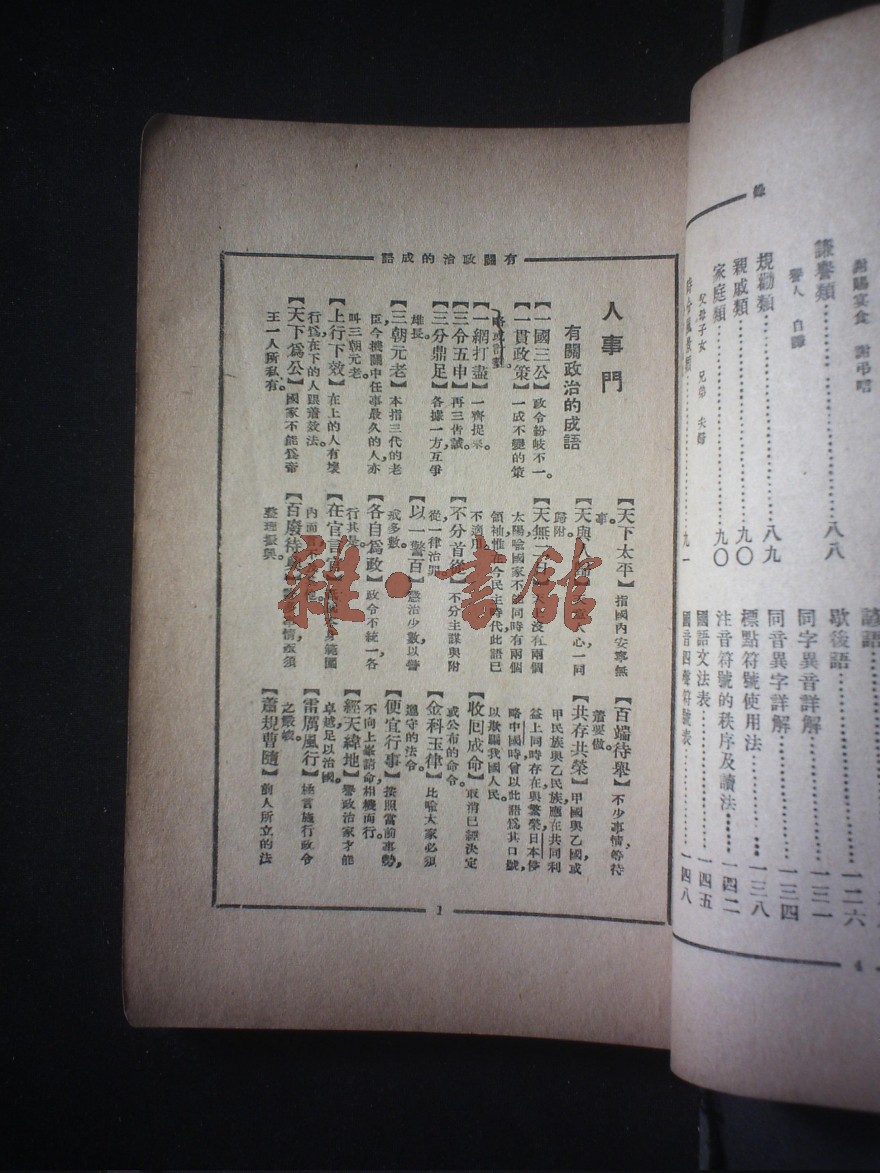 錄
謝賜宴食　謝弔唁
謙譽類…………八八
譽人　自謙
規勸類…………八九
親戚類…………九〇
家庭類…………九〇
父母子女　兄弟　夫婦
九一
諺語
歇後語…………一二六
同字異音詳解…………一三一
同音異字詳解…………一三四
標點符號使用法…………一三八
注音符號的秩序及讀法…………一四二
國語文法表…………一四五
國音四聲符號表…………一四八
4
有關政治的成語
人事門
有關政治的成語
【一國三公】政令紛岐不一。
【一貫政策】一成不變的策
略或計劃。
【一網打盡】一齊捉來。
【三令五申】再三告誡。
【三分鼎足】各據一方，互爭
雄長。
【三朝元老】本指三代的老
臣，今機關中任事最久的人，亦
叫三朝元老。
【上行下效】在上的人有壞
行爲，在下的人跟着效法。
【天下爲公】國家不能爲帝
王一人所私有。
【天下太平】指國內安寧無
事。
【天與人歸】天意人心一同
歸附。
【天無二日】天上沒有兩個
太陽，喻國家不能同時有兩個
領袖，惟在今民主時代此語已
不適用。
【不分首從】不分主謀與附
從，一律治罪。
【以一警百】懲治少數以警
戒多數。
【各自爲政】政令不統一，各
行其是。
【在官言官】
【百廢待興】須
整理振興。
【百端待舉】不少事情等待
着興做。
【共存共榮】甲國與乙國，或
甲民族與乙民族，應在共同利
益上同時存在與繁榮，日本侵
略中國時曾以此語爲其口號，
以欺騙我國人民。
【收回成命】取消已經決定
或公布的命令。
【金科玉律】比喻大家必須
遵守的法令。
【便宜行事】按照當前事勢，
不向上峯請命，相機而行。
【經天緯地】譽政治家才能
卓越足以治國。
【雷厲風行】極言施行政令
之嚴峻。
【蕭規曹隨】前人所立的法
1
雜·書館